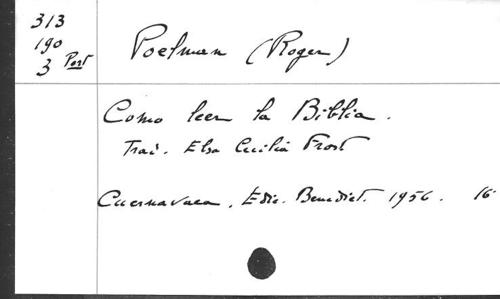 313
190
3 Port
Poelman (Roger)
Como leer la Biblia.
Trad. Elsa Cecilia Frost
Cuernavaca, Edic. Benedict. 1956. 16